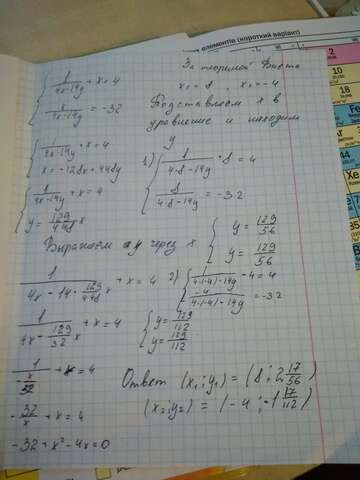 елементів (короткий варіант)
{ 1/(4x-14y) + x = 4
{ x/(4x-14y) = -32
{ 1/(4x-14y) + x = 4
{ x = -128x + 448y
{ 1/(4x-14y) + x = 4
{ y = 129/448 x
Выражаем y через x
1/(4x - 14 · 129/448 x) + x = 4
1/(4x - 129/32 x) + x = 4
1/(-x/32) + x = 4
-32/x + x = 4
-32 + x² - 4x = 0
За теоремой Виета
x = 8, x = -4
Подставляем x в
уравнение и находим
y
1) { 1/(4·8-14y) + 8 = 4
{ 8/(4·8-14y) = -32
{ y = 129/56
{ y = 129/56
2) { 1/(4·(-4)-14y) - 4 = 4
{ -4/(4·(-4)-14y) = -32
{ y = -129/112
{ y = -129/112
Ответ (x₁; y₁) = (8; 2 17/56)
(x₂; y₂) = (-4; -1 17/112)
2
10
18
Ar
Fe
Kr
Xe